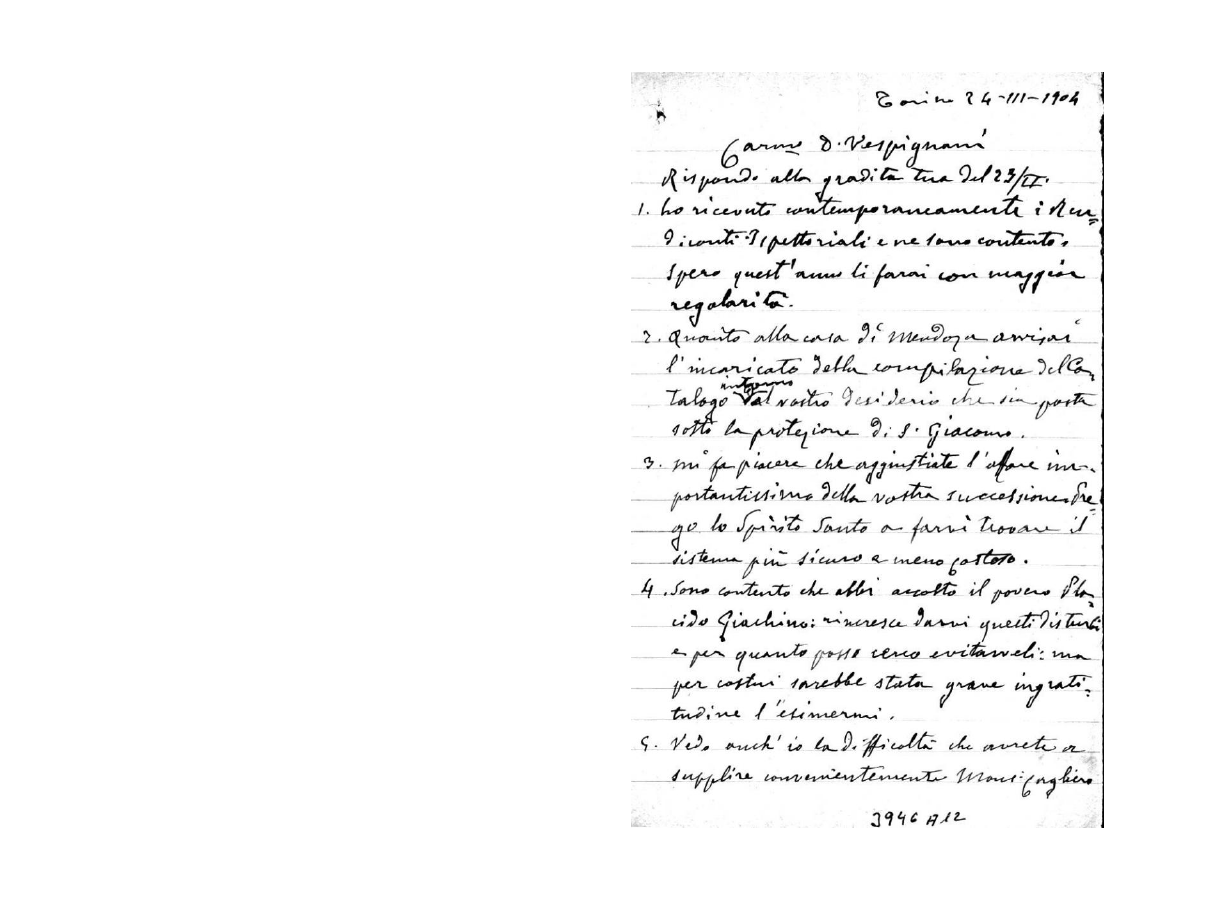 Torino 24-III-1904
Carmo D. Vespignani
Rispondo alla gradita tua del 23/II.
1. ho ricevuto contemporaneamente i Ren=
diconti Ispettoriali e ne sono contento.
Spero quest'anno li farai con maggior
regolarità.
2. Quanto alla casa di Mendoza avvisai
l'incaricato della compilazione del Ca=
talogo intorno al vostro desiderio che sia posta
sotto la protezione di S. Giacomo.
3. mi fa piacere che aggiustiate l'affare im-
portantissimo della vostra successione. Pre=
go lo Spirito Santo a farvi trovare il
sistema più sicuro e meno costoso.
4. Sono contento che abbi accolto il povero Pla=
cido Giachino: rincresce darvi questi disturbi
e per quanto posso cerco evitarveli: ma
per costui sarebbe stata grave ingrati=
tudine l'esimermi.
5. Vedo anch'io la difficoltà che avrete a
supplire convenientemente Mons. Cagliero
3946 A12